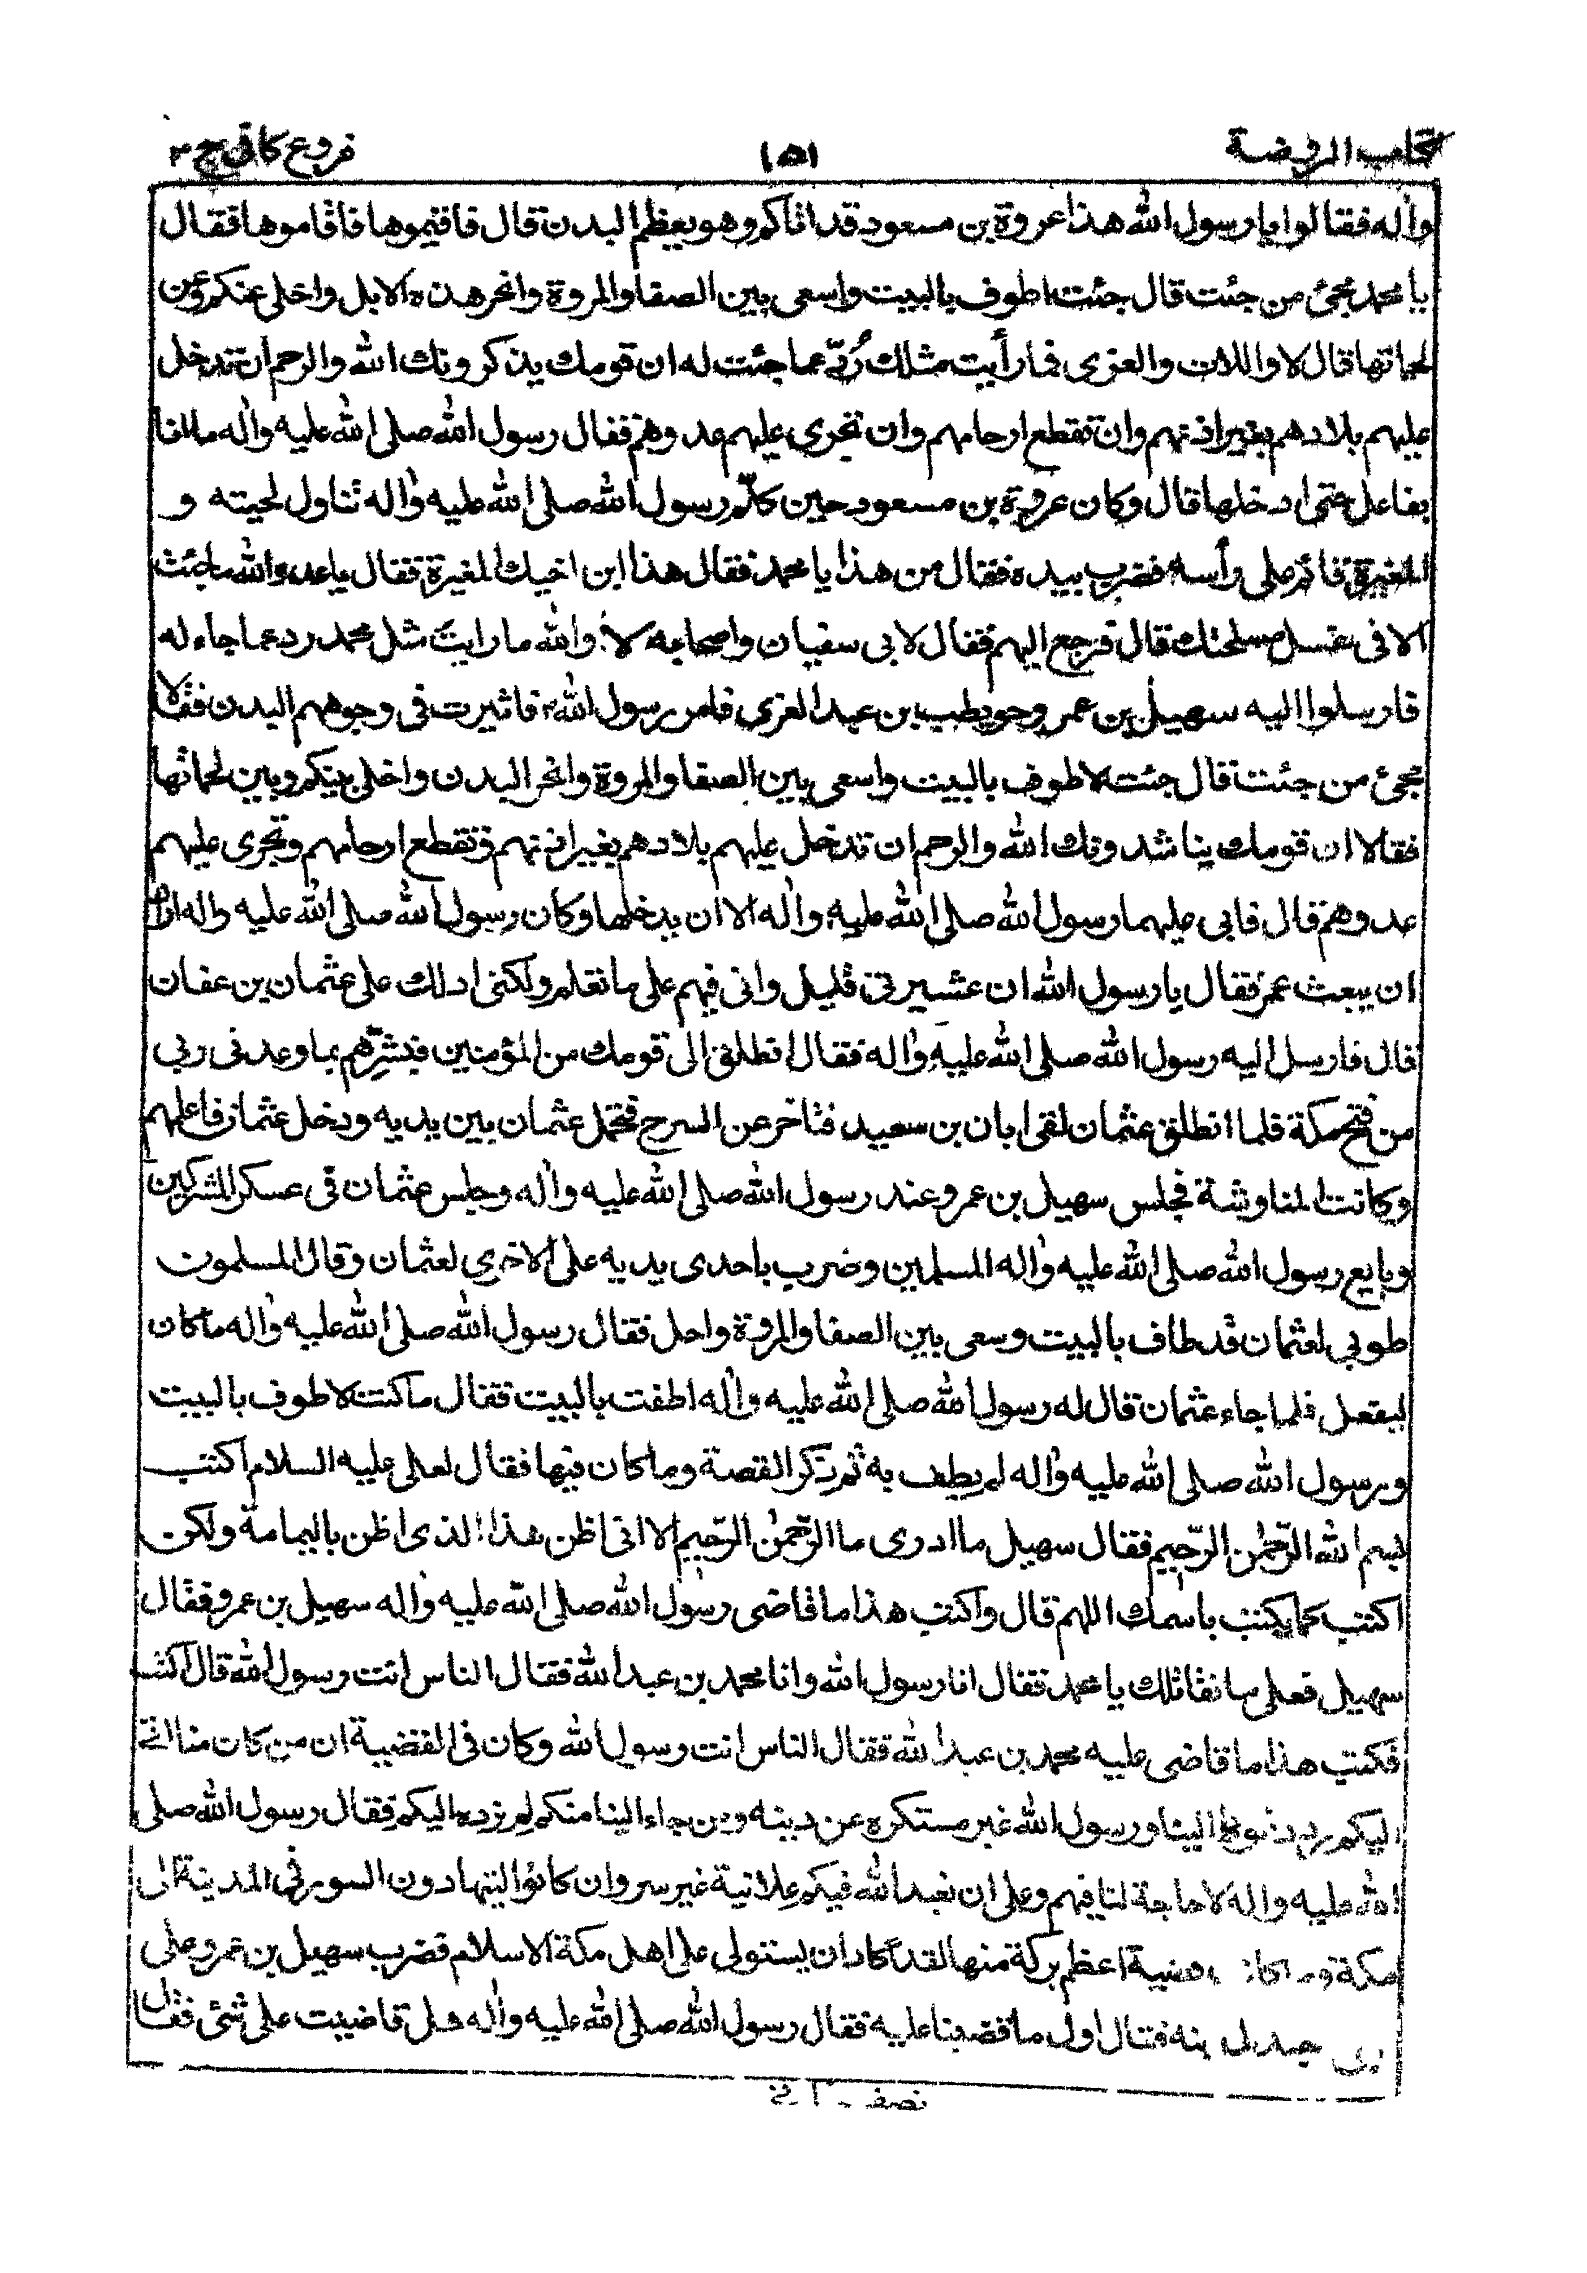 كتاب الروضة ١٥١ فروع كافي ج ٣
واٰله فقالوا يا رسول الله هذا عروة بن مسعود قد اتاكم وهو يعظم البدن قال فاقيموها فاقاموها فقال
يا محمد مجئ من جئت قال جئت اطوف بالبيت واسعى بين الصفا والمروة وانحر هذه الابل واخلى عنكم وعن
لحمانها قال لا واللات والعزى فما رأيت مثلك رُدّ عما جئت له ان قومك يذكرونك الله والرحم ان تدخل
عليهم بلادهم بغير اذنهم وان تقطع ارحامهم وان تجرى عليهم عدوهم فقال رسول الله صلى الله عليه واٰله ما انا
بفاعل حتى ادخلها قال وكان عروة بن مسعود حين كلّم رسول الله صلى الله عليه واٰله تناول لحيته و
المغيرة قائم على رأسه فضرب بيده فقال من هذا يا محمد فقال هذا ابن اخيك المغيرة فقال يا غدر والله ما جئت
الا فى غسل سلحتك قال فرجع اليهم فقال لابى سفيان واصحابه لا والله ما رايت مثل محمد رد عما جاء له
فارسلوا اليه سهيل بن عمرو وحويطب بن عبد العزى فامر رسول الله فاثيرت فى وجوههم البدن فقالا
مجئ من جئت قال جئت لاطوف بالبيت واسعى بين الصفا والمروة وانحر البدن واخلى بينكم وبين لحمانها
فقالا ان قومك يناشدونك الله والرحم ان تدخل عليهم بلادهم بغير اذنهم وتقطع ارحامهم وتجرى عليهم
عدوهم قال فابى عليهما رسول الله صلى الله عليه واٰله الا ان يدخلها وكان رسول الله صلى الله عليه واله اراد
ان يبعث عمر فقال يا رسول الله ان عشيرتى قليل وانى فيهم على ما تعلم ولكنى ادلك على عثمان بن عفان
قال فارسل اليه رسول الله صلى الله عليه واٰله فقال انطلق الى قومك من المؤمنين فبشّرهم بما وعدنى ربى
من فتح مكة فلما انطلق عثمان لقى ابان بن سعيد فتاخر عن السرح فحمل عثمان بين يديه ودخل عثمان فاعلمهم
وكانت المناوشة فجلس سهيل بن عمرو عند رسول الله صلى الله عليه واٰله وجلس عثمان فى عسكر المشركين
وبايع رسول الله صلى الله عليه واٰله المسلمين وضرب باحدى يديه على الاخرى لعثمان وقال المسلمون
طوبى لعثمان قد طاف بالبيت وسعى بين الصفا والمروة واحل فقال رسول الله صلى الله عليه واٰله ما كان
ليفعل فلما جاء عثمان قال له رسول الله صلى الله عليه واٰله اطفت بالبيت فقال ما كنت لاطوف بالبيت
ورسول الله صلى الله عليه واٰله لم يطف به ثم ذكر القصة وما كان فيها فقال لعلى عليه السلام اكتب
بسم الله الرّحمٰن الرّحيم فقال سهيل ما ادرى ما الرّحمٰن الرّحيم الا انى اظن هذا الذى اظن باليمامة ولكن
اكتب كما يكتب باسمك اللهم قال واكتب هذا ما قاضى رسول الله صلى الله عليه واٰله سهيل بن عمرو فقال
سهيل فعلى ما نقاتلك يا محمد فقال انا رسول الله وانا محمد بن عبد الله فقال الناس انت رسول الله قال اكتب
فكتب هذا ما قاضى عليه محمد بن عبد الله فقال الناس انت رسول الله وكان فى القضية ان من كان منا اتى
اليكم رددتموه الينا ورسول الله غير مستكره عن دينه ومن جاء الينا منكم لم نرده اليكم فقال رسول الله صلى
الله عليه واٰله لا حاجة لنا فيهم وعلى ان نعبد الله فيكم علانية غير سر وان كانوا ليتهادون السيور فى المدينة الى
مكة وما كانت قضية اعظم بركة منها لقد كاد ان يستولى على اهل مكة الاسلام فضرب سهيل بن عمرو على
ابى جندل ابنه فقال اول ما قضينا عليه فقال رسول الله صلى الله عليه واٰله هل قاضيت على شئ فقال